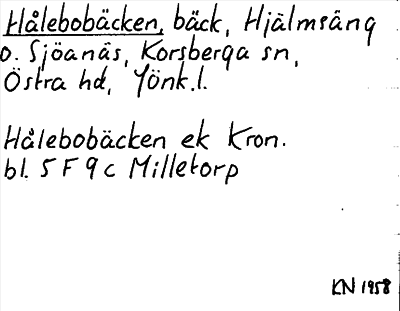 Hålebobäcken, bäck, Hjälmsäng
o. Sjöanäs, Korsberga sn,
Östra hd, Jönk.l.
Hålebobäcken ek Kron.
bl. 5 F 9 c Milletorp
KN 1958